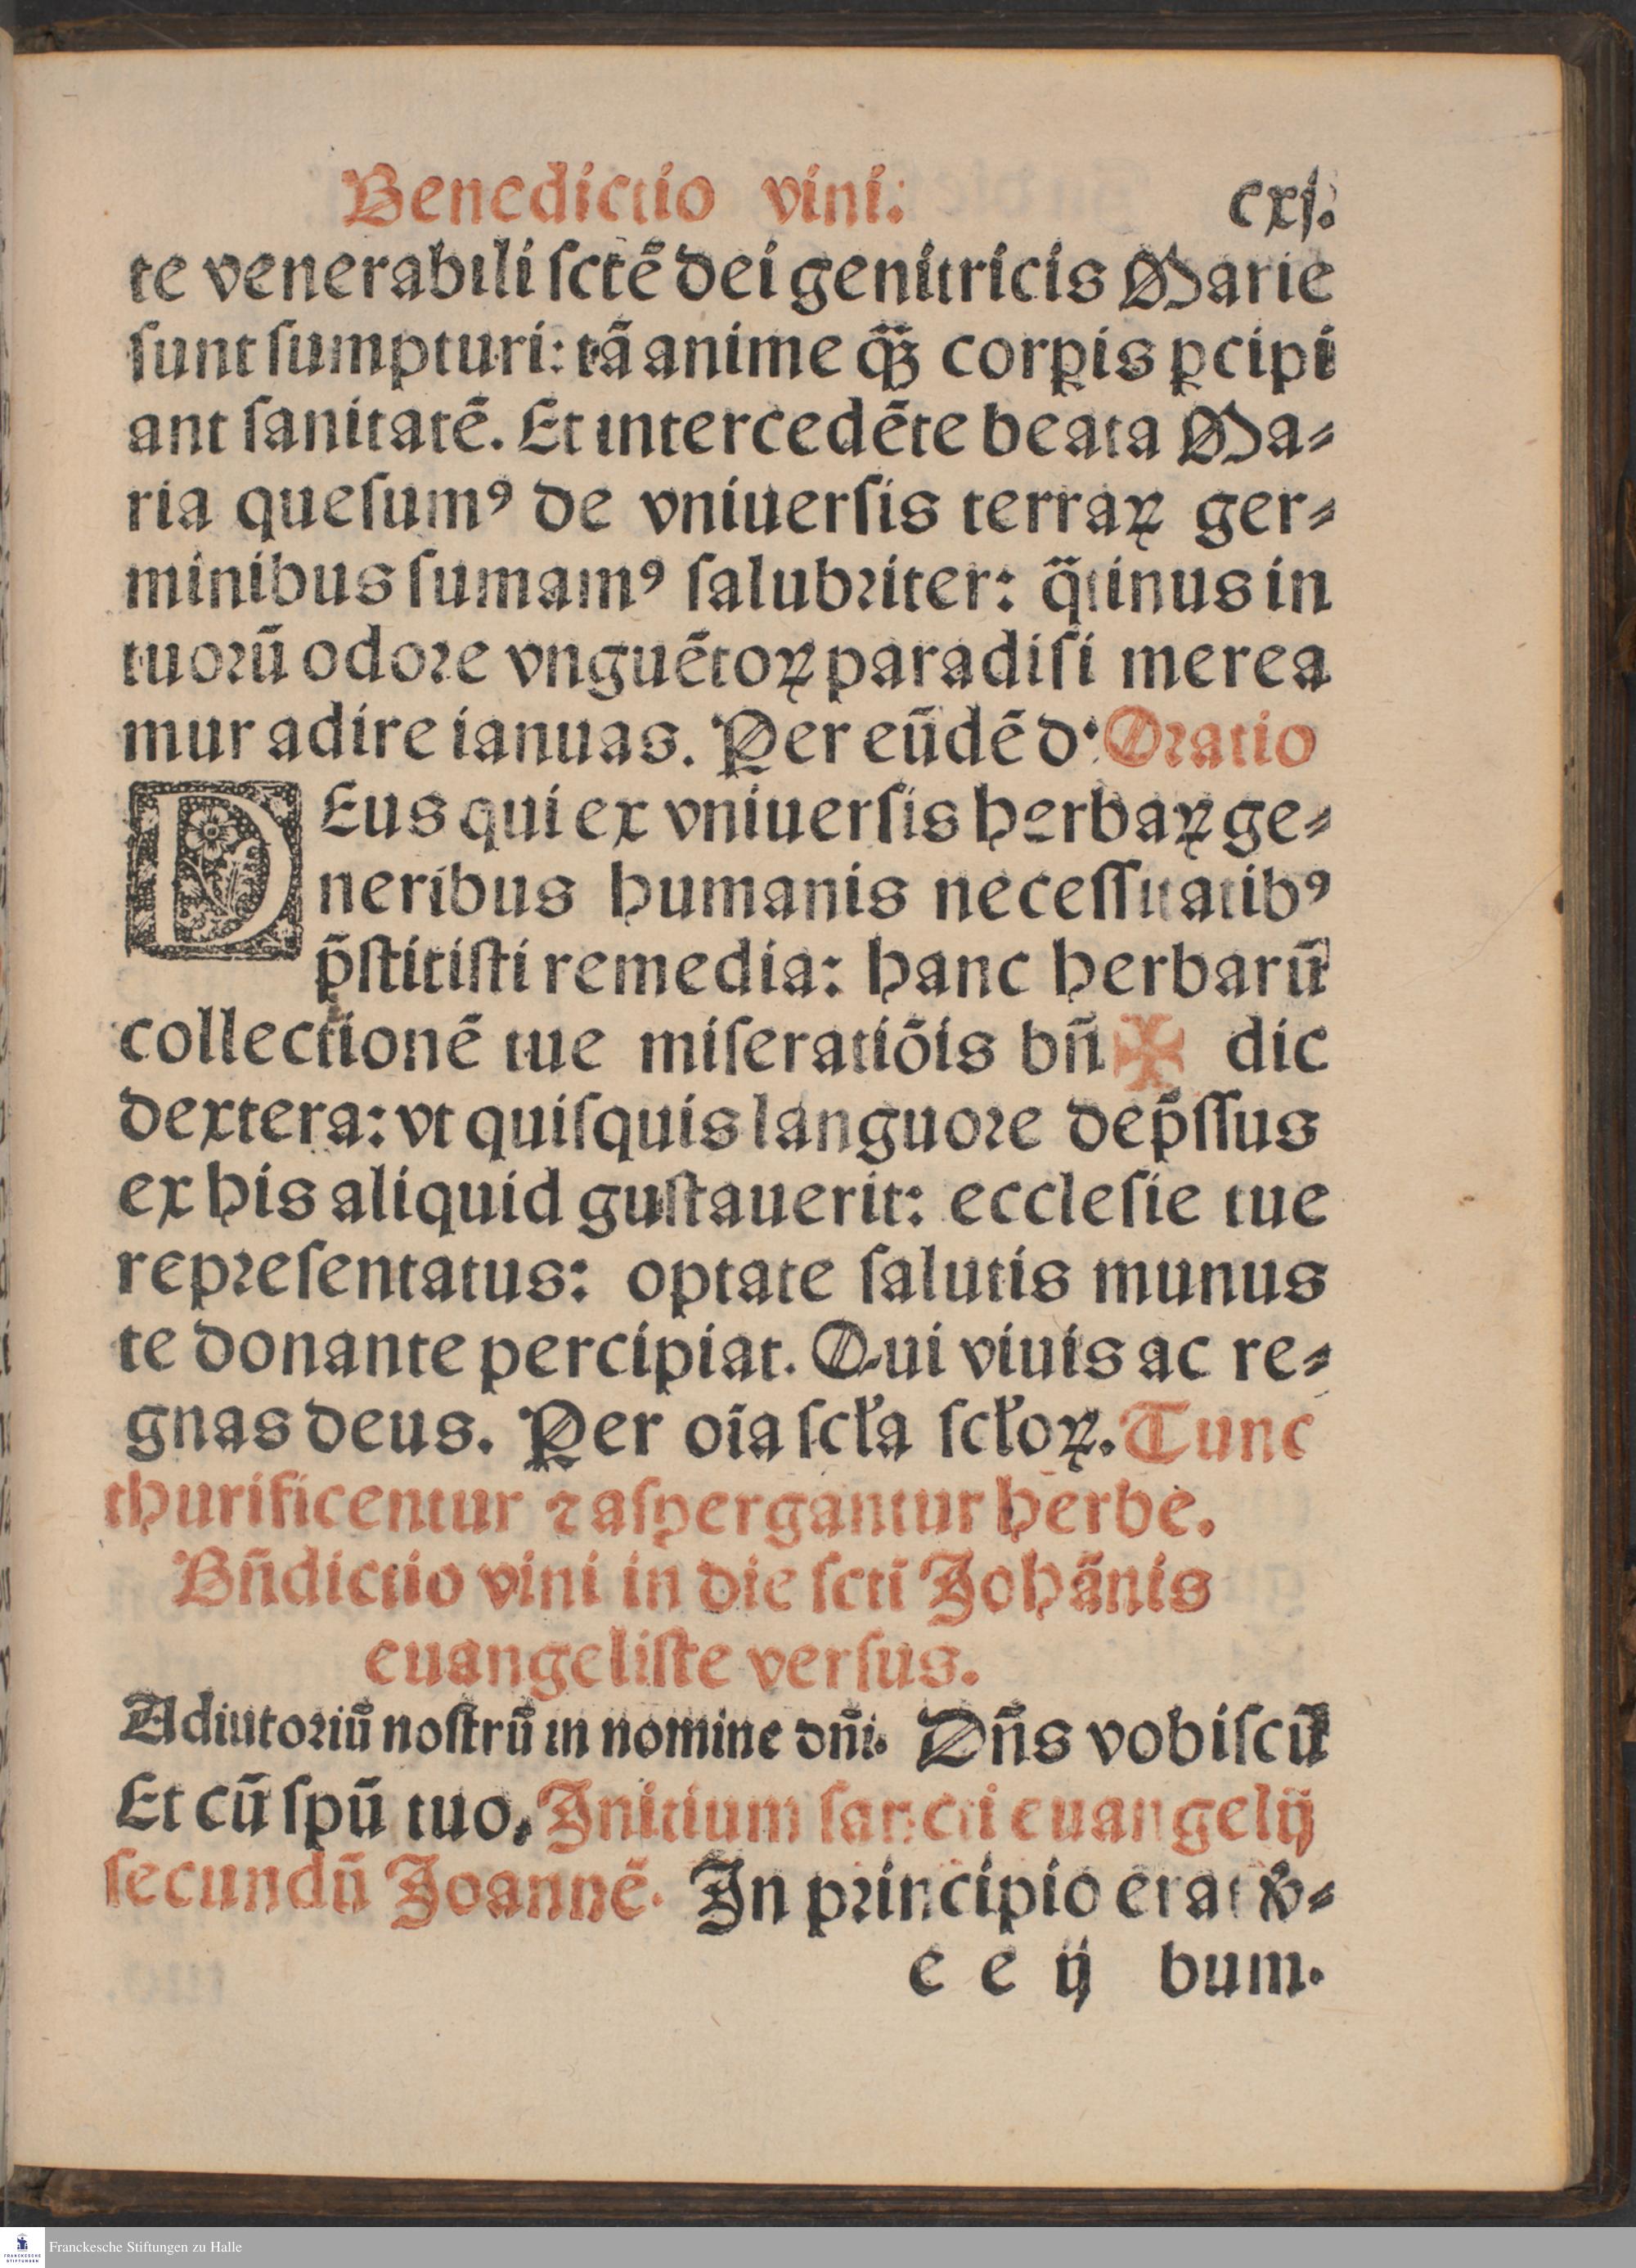 Benedictio vini: cxj.
te venerabili ſctē dei genitricis Marie
ſunt ſumpturi: tā anime q̄ꝫ corꝑis ꝑcipi
ant ſanitatē. Et intercedēte beata Ma⸗
ria queſumꝰ de vniuerſis terraꝝ ger⸗
minibus ſumamꝰ ſalubꝛiter: q̄tinus in
tuoꝛū odoꝛe vnguētoꝝ paradiſi merea
mur adire ianuas. Per eūdē d· Oꝛatio
DEus qui ex vniuerſis herbaꝝ ge⸗
neribus humanis neceſſitatibꝰ
p̄ſtitiſti remedia: hanc herbarū
collectionē tue miſeratiōis bn̄ ✠ dic
dextera: vt quiſquis languoꝛe dep̄ſſus
ex his aliquid guſtauerit: eccleſie tue
repꝛeſentatus: optate ſalutis munus
te donante percipiat. Qui viuis ac re⸗
gnas deus. Per oīa ſcła ſcłoꝝ. Tunc
thurificentur ⁊ aſpergantur herbe.
Bn̄dictio vini in die ſctī Johānis
euangeliſte verſus.
Adiutoꝛiū noſtrū in nomine dn̄i. Dn̄s vobiſcū
Et cū ſpū tuo. Initium ſancti euangelij
ſecundū Joannē. In pꝛincipio erat v̉⸗
e e ij bum.
Franckesche Stiftungen zu Halle
FRANCKESCHE
STIFTUNGEN